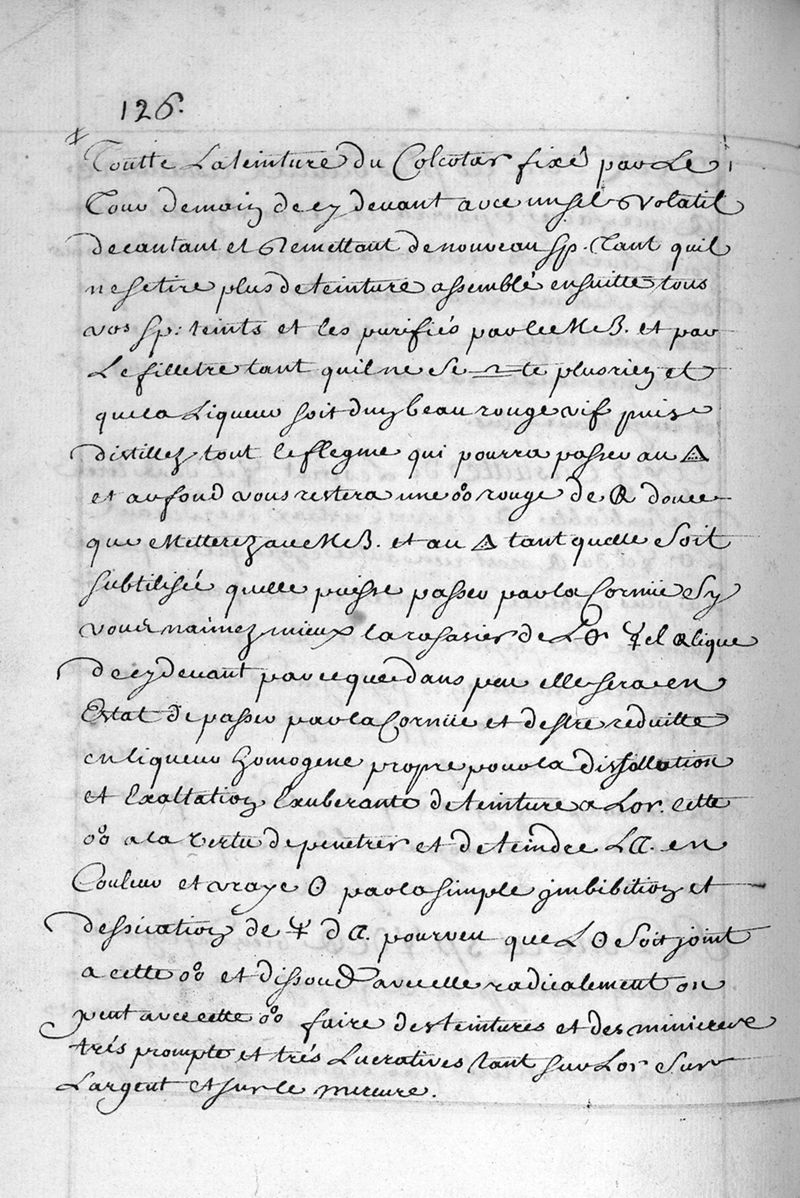 126.
Toutte La teinture du Colcotar fixé par Le
Tour demain de cy devant avec un sel volatil
decantant et Remettant de nouveau Sp. Tant quil
ne se tire plus de teinture assemblé ensuitte tous
vos Sp: teints et les purifiés par le M B. et par
Le filletre tant quil ne se te plus rien et
que la Liqueur soit dun beau rouge vif puis
distillez tout le flegme qui pourra passer au 🜂
et au fond vous restera une o°o rouge de R douce
que Metterez au M B. et au 🜂 tant quelle Soit
subtilisée quelle puisse passer par la Cornüe Sy
vous naimez mieux la rasasier de L☉ ☿ el alique
de cy devant parce que dans peu elle sera en
Estat de passer par la Cornüe et destre reduitte
en liqueur homogene propre pour la dissollution
et Exaltation Exuberante de teinture a Lor. cette
o°o a la vertu de penetrer et de teindre L⅏. en
Couleur et vraye ☉ par la simple jmbibition et
dessication de d ⅏. pourveu que L ☉ Soit joint
a cette o°o et dissoud avec elle radicalement on
peut avec cette o°o faire des teintures et des minieres
trés prompte et trés Lucratives tant sur Lor Sur
Largent et sur le mercure.